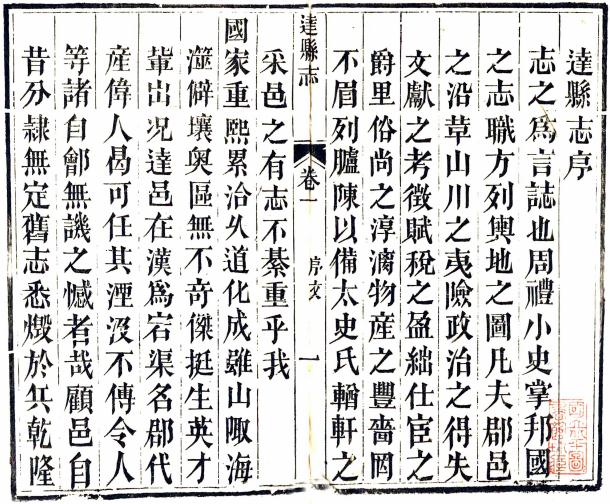 達縣志序
志之爲言誌也周禮小史掌邦國
之志職方列輿地之圖凡夫郡邑
之沿革山川之夷險政治之得失
文獻之考徵賦稅之盈絀仕宦之
爵里俗尚之淳漓物産之豐嗇罔
不眉列臚陳以備太史氏輶軒之
采邑之有志不綦重乎我
達縣志
卷一
序文
一
國家重熙累洽久道化成雖山陬海
澨僻壤奥區無不奇傑挺生英才
輩出况達邑在漢爲宕渠名郡代
產偉人曷可任其湮沒不傳令人
等諸自鄶無譏之憾者哉顧邑自
昔分隷無定舊志悉燬於兵乾隆